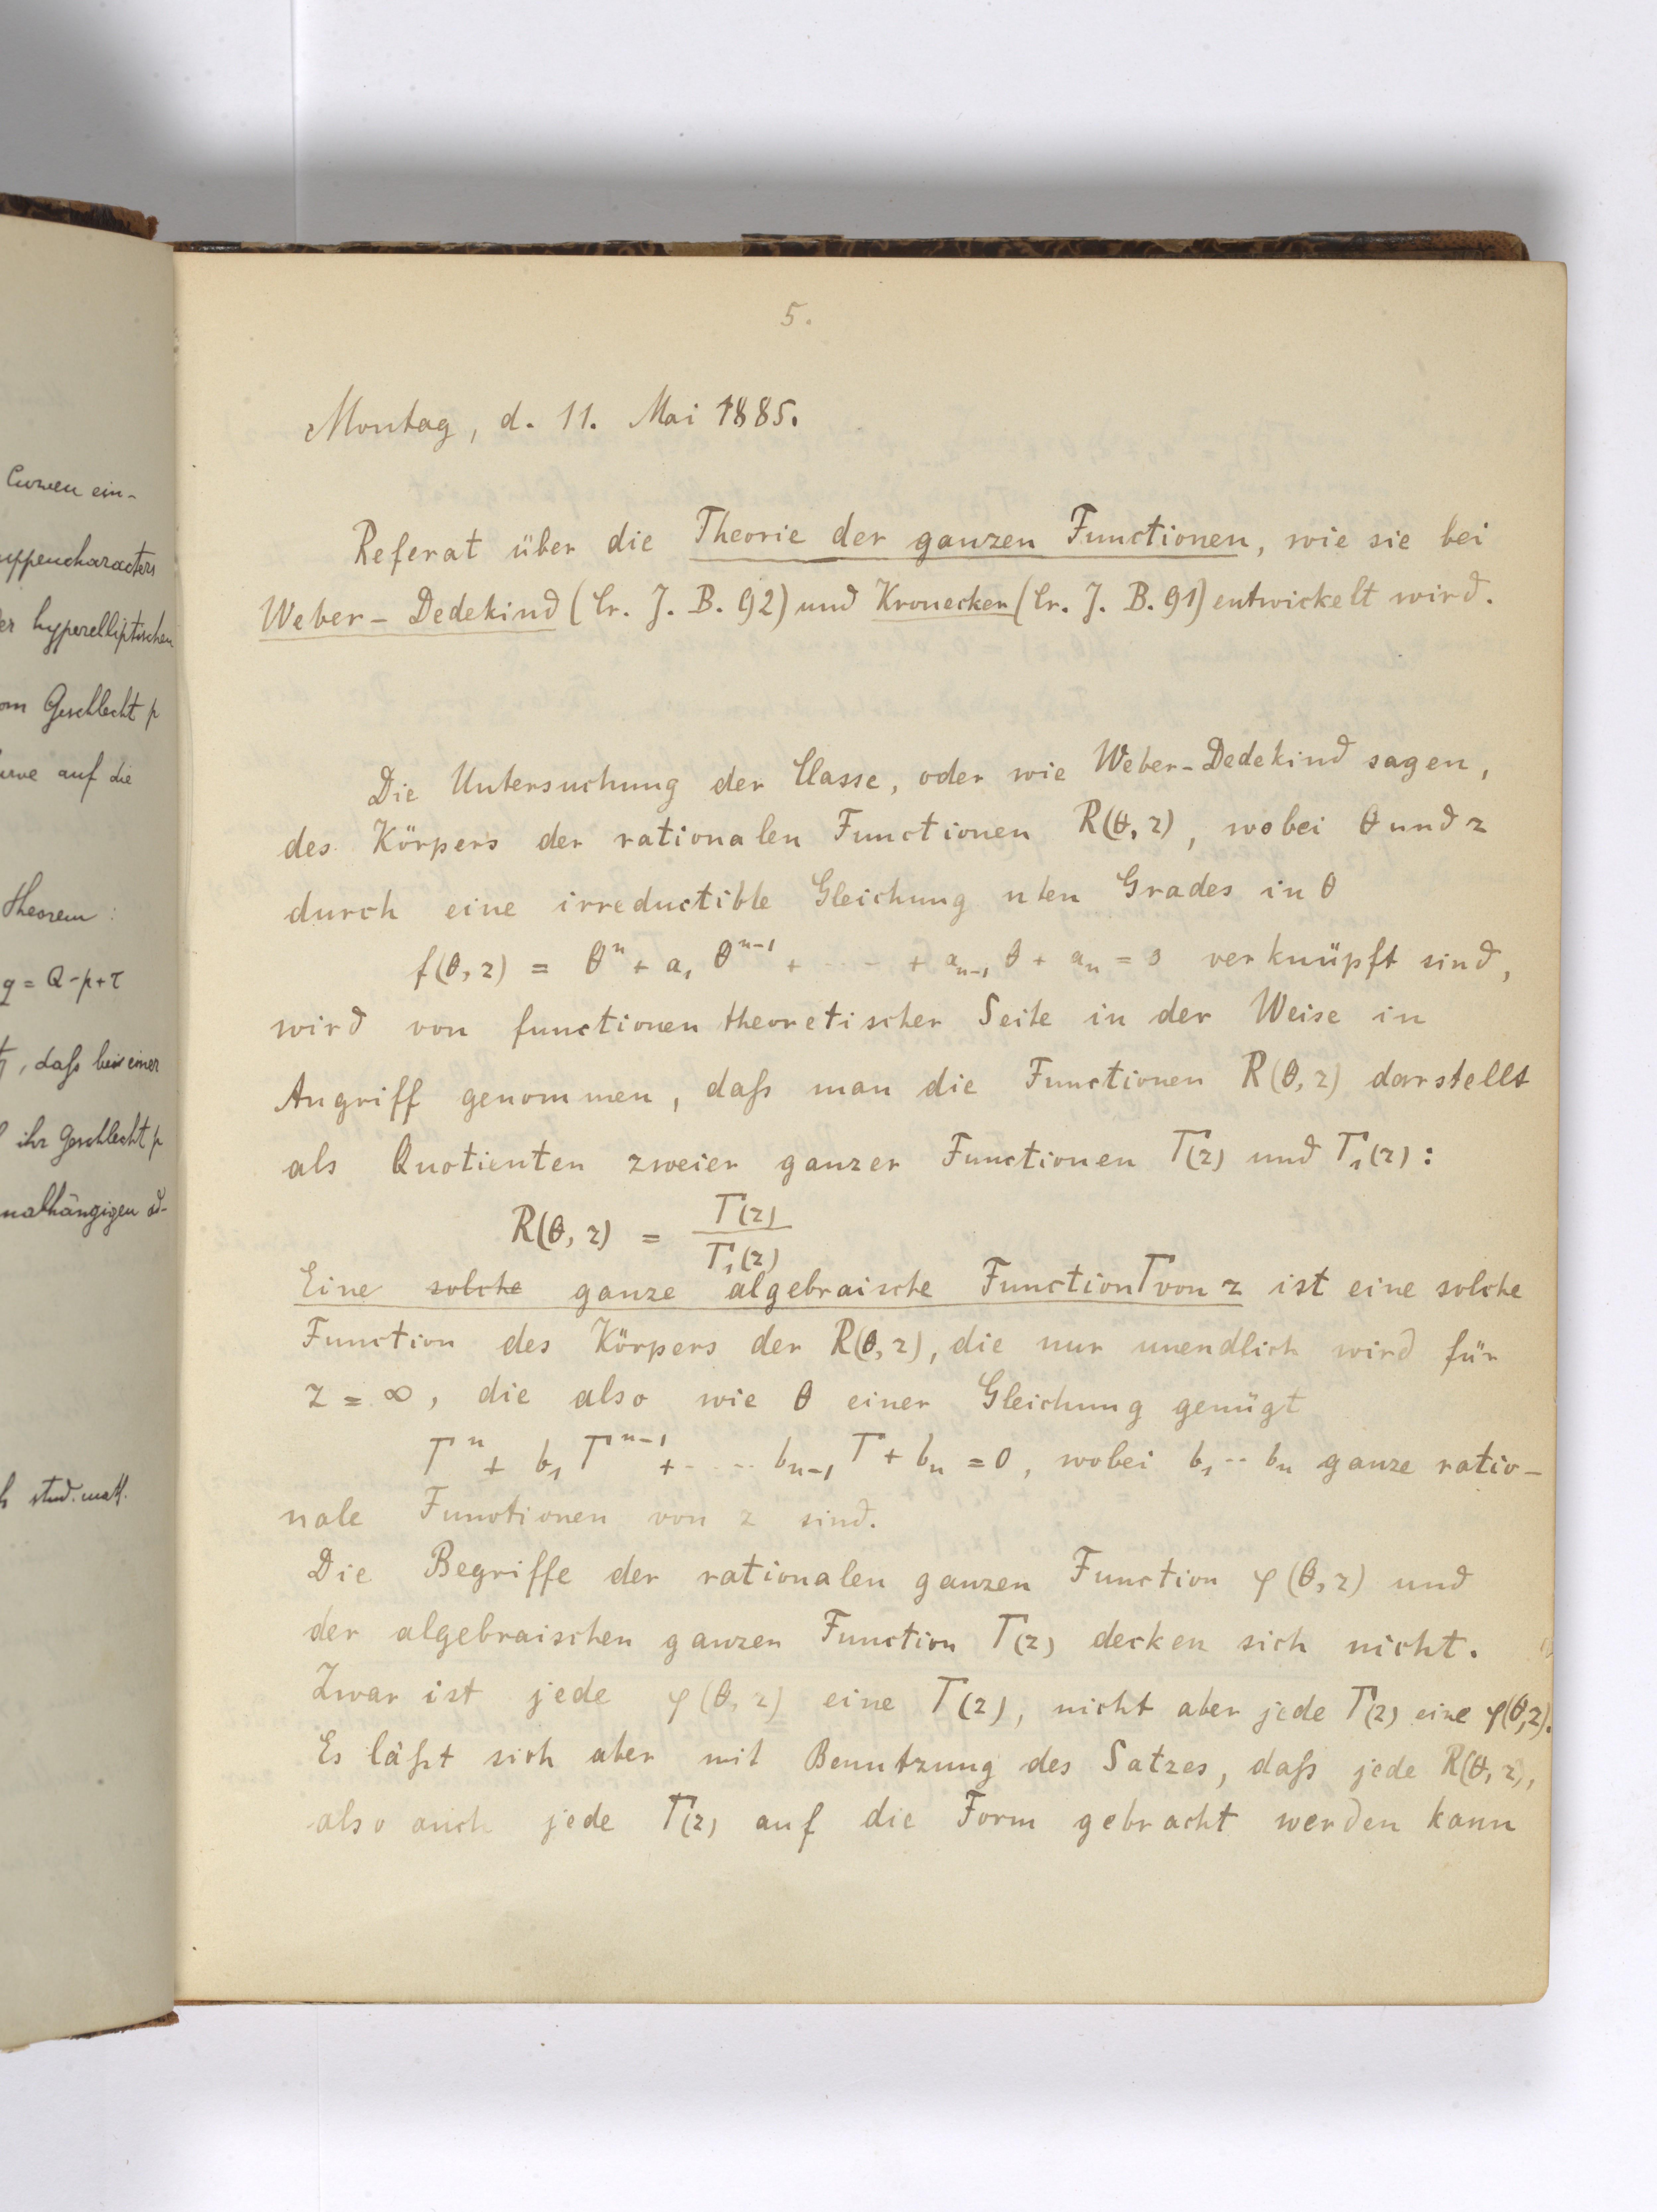 Curven ein-
uppencharacters
er hyperelliptischen
om Geschlecht p
urve auf die
Theorem:
q = Q - p + τ
, daß bei einer
ihr Geschlecht p
nabhängigen
stud. math.
5.
Montag, d. 11. Mai 1885.
Referat über die Theorie der ganzen Functionen, wie sie bei
Weber-Dedekind (Cr. J. B. 92) und Kronecker (Cr. J. B. 91) entwickelt wird.
Die Untersuchung der Classe, oder wie Weber-Dedekind sagen,
des Körpers der rationalen Functionen R(θ, z), wobei θ und z
durch eine irreductible Gleichung nten Grades in θ
f(θ, z) = θⁿ + a₁ θⁿ⁻¹ + ···· + aₙ₋₁ θ + aₙ = 0 verknüpft sind,
wird von functionentheoretischer Seite in der Weise in
Angriff genommen, daß man die Functionen R(θ, z) darstellt
als Quotienten zweier ganzer Functionen T(z) und T₁(z):
R(θ, z) = T(z) / T₁(z)
Eine solche ganze algebraische Function T von z ist eine solche
Function des Körpers der R(θ, z), die nur unendlich wird für
z = ∞, die also wie θ einer Gleichung genügt
Tⁿ + b₁ Tⁿ⁻¹ + ···· bₙ₋₁ T + bₙ = 0, wobei b₁ ·· bₙ ganze ratio-
nale Functionen von z sind.
Die Begriffe der rationalen ganzen Function φ(θ, z) und
der algebraischen ganzen Function T(z) decken sich nicht.
Zwar ist jede φ(θ, z) eine T(z), nicht aber jede T(z) eine φ(θ, z).
Es läßt sich aber mit Benutzung des Satzes, daß jede R(θ, z),
also auch jede T(z) auf die Form gebracht werden kann